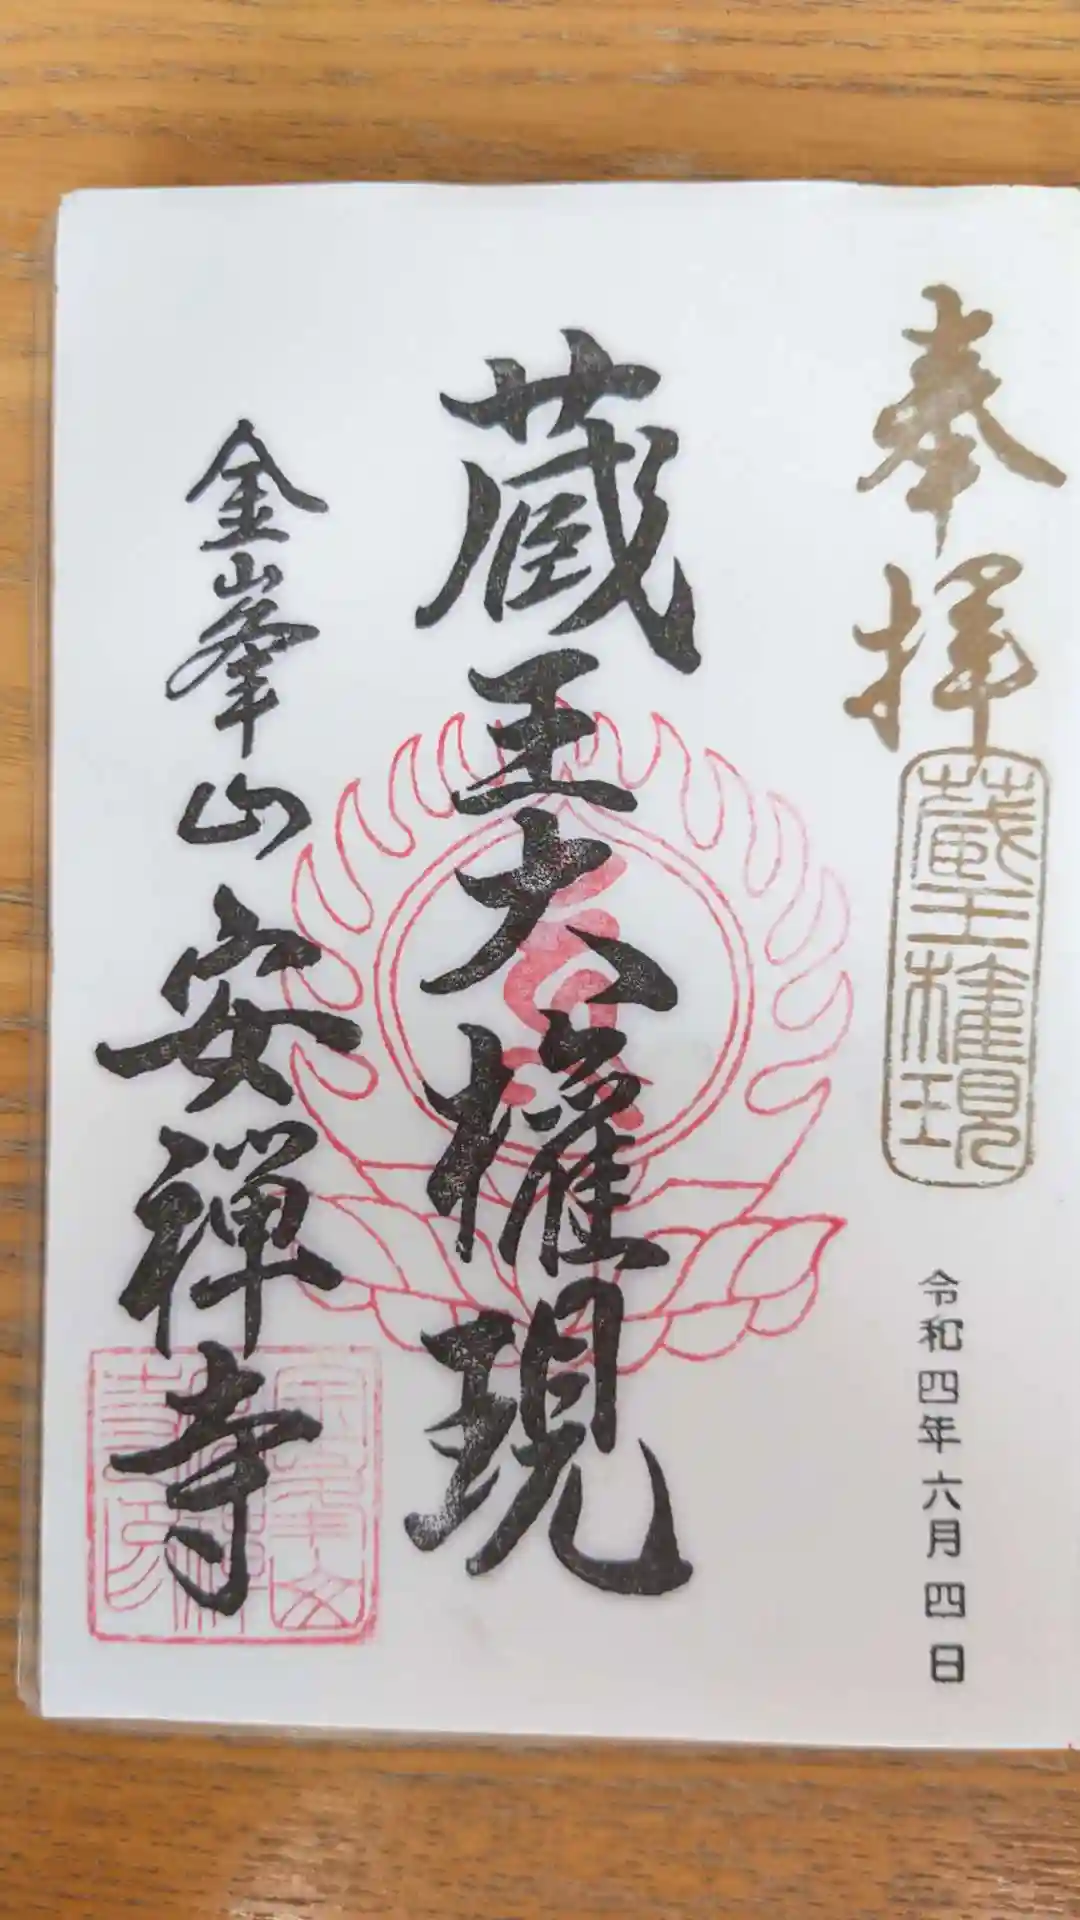 奉拝
蔵王権現
令和四年六月四日
蔵王大権現
金峯山 安禅寺